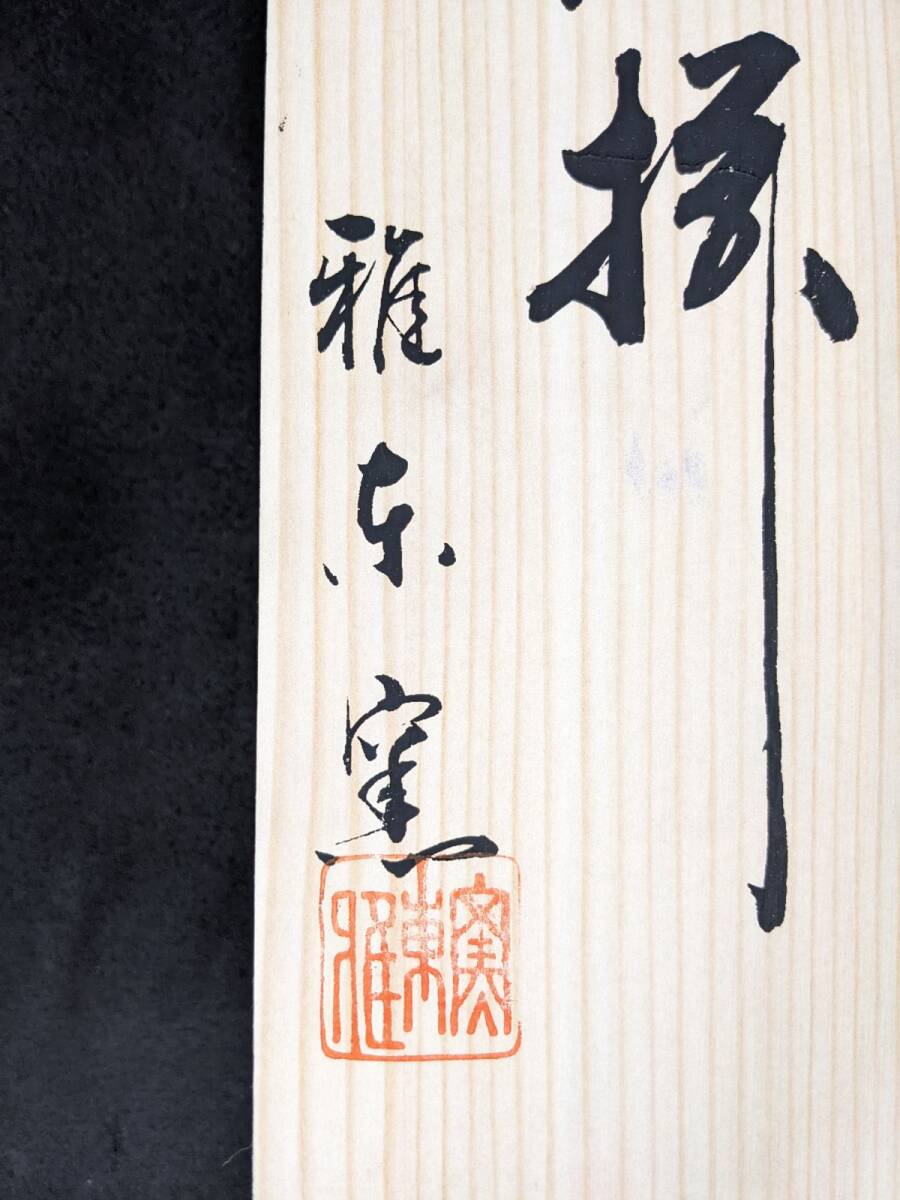 揃
雅東窯
雅東窯